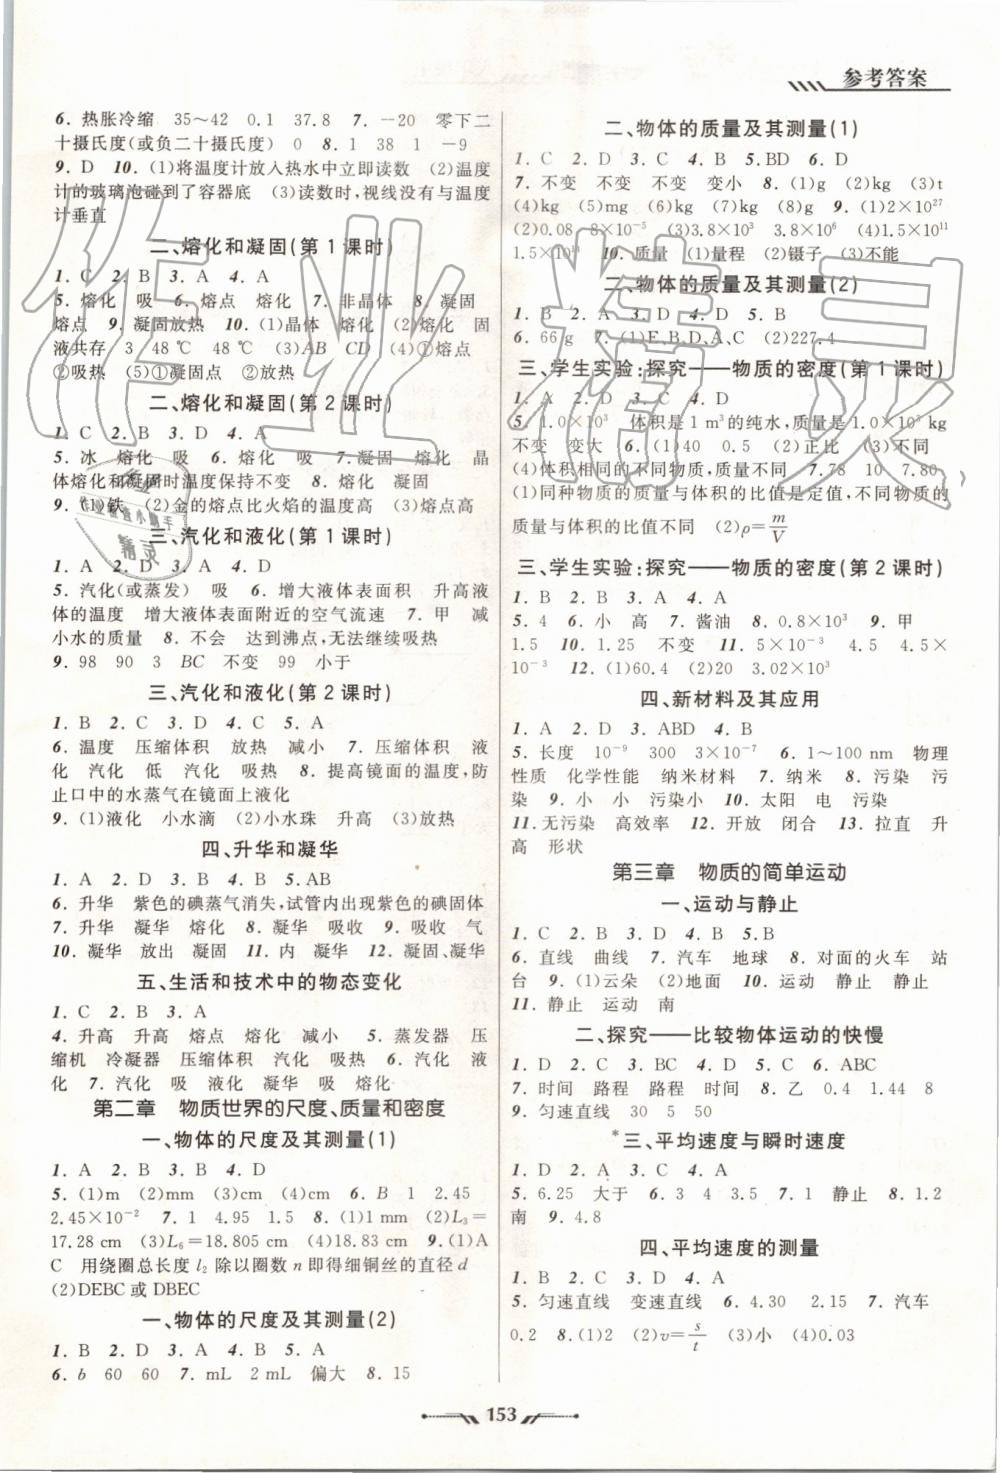 参考答案
6. 热胀冷缩 35～42 0.1 37.8 7. −20 零下二
十摄氏度(或负二十摄氏度) 0 8. 1 38 1 −9
9. D 10. (1)将温度计放入热水中立即读数 (2)温度
计的玻璃泡碰到了容器底 (3)读数时,视线没有与温度
计垂直
二、熔化和凝固(第1课时)
1. C 2. B 3. A 4. A
5. 熔化 吸 6. 熔点 熔化 7. 非晶体 8. 凝固
熔点 9. 凝固放热 10. (1)晶体 熔化 (2)熔化 固
液共存 3 48 ℃ 48 ℃ (3)AB CD (4)①熔点
②吸热 (5)①凝固点 ②放热
二、熔化和凝固(第2课时)
1. C 2. B 3. D 4. A
5. 冰 熔化 吸 6. 吸 7. 凝固 熔化 晶
体熔化和凝固时温度保持不变 8. 熔化 凝固
9. (1)铁 (2)金的熔点比火焰的温度高 (3)熔点高
三、汽化和液化(第1课时)
1. A 2. D 3. A 4. D
5. 汽化(或蒸发) 吸 6. 增大液体表面积 升高液
体的温度 增大液体表面附近的空气流速 7. 甲 减
小水的质量 8. 不会 达到沸点,无法继续吸热
9. 98 90 3 BC 不变 99 小于
三、汽化和液化(第2课时)
1. B 2. C 3. D 4. C 5. A
6. 温度 压缩体积 放热 减小 7. 压缩体积 液
化 汽化 低 汽化 吸热 8. 提高镜面的温度,防
止口中的水蒸气在镜面上液化
9. (1)液化 小水滴 (2)小水珠 升高 (3)放热
四、升华和凝华
1. A 2. D 3. B 4. B 5. AB
6. 升华 紫色的碘蒸气消失,试管内出现紫色的碘固体
7. 升华 凝华 熔化 8. 凝华 吸收 9. 吸收 气
10. 凝华 放出 凝固 11. 内 凝华 12. 凝固、凝华
五、生活和技术中的物态变化
1. C 2. B 3. A
4. 升高 升高 熔点 熔化 减小 5. 蒸发器 压
缩机 冷凝器 压缩体积 汽化 吸热 6. 汽化 液
化 7. 汽化 吸 液化 凝华 吸 熔化
第二章 物质世界的尺度、质量和密度
一、物体的尺度及其测量(1)
1. A 2. D 3. B 4. D
5. (1)m (2)mm (3)cm (4)cm 6. B 1 2.45
2.45×10⁻² 7. 1 4.95 1.5 8. (1)1 mm (2)L₃=
17.28 cm (3)L₆=18.805 cm (4)18.83 cm 9. (1)A
C 用绕圈总长度 l₂ 除以圈数 n 即得细铜丝的直径 d
(2)DEBC 或 DBEC
一、物体的尺度及其测量(2)
1. B 2. D 3. A 4. B 5. A
6. b 60 60 7. mL 2 mL 偏大 8. 15
二、物体的质量及其测量(1)
1. C 2. D 3. C 4. B 5. BD 6. D
7. 不变 不变 不变 变小 8. (1)g (2)kg (3)t
(4)kg (5)mg (6)kg (7)kg (8)g 9. (1)2×10²⁷
(2)0.08 8×10⁻⁵ (3)3.8×10³ 3.8×10⁶ (4)1.5×10¹¹
1.5×10¹⁴ 10. 质量 (1)量程 (2)镊子 (3)不能
二、物体的质量及其测量(2)
1. B 2. A 3. D 4. D 5. B
6. 66 7. (1)E、B、D、A、C (2)227.4
三、学生实验:探究——物质的密度(第1课时)
1. D 2. A 3. C 4. D
5. 1.0×10³ 体积是 1 m³ 的纯水,质量是 1.0×10³ kg
不变 变大 6. (1)40 0.5 (2)正比 (3)不同
(4)体积相同的不同物质,质量不同 7. 78 10 7.80
(1)同种物质的质量与体积的比值是定值,不同物质的
质量与体积的比值不同 (2)ρ=m/V
三、学生实验:探究——物质的密度(第2课时)
1. B 2. B 3. A 4. A
5. 4 6. 小 高 7. 酱油 8. 0.8×10³ 9. 甲
1.5 10. 1.25 不变 11. 5×10⁻³ 4.5 4.5×
10⁻³ 12. (1)60.4 (2)20 3.02×10³
四、新材料及其应用
1. A 2. D 3. ABD 4. B
5. 长度 10⁻⁹ 300 3×10⁻⁷ 6. 1～100 nm 物理
性质 化学性能 纳米材料 7. 纳米 8. 污染 污
染 9. 小 小 污染小 10. 太阳 电 污染
11. 无污染 高效率 12. 开放 闭合 13. 拉直 升
高 形状
第三章 物质的简单运动
一、运动与静止
1. C 2. B 3. D 4. B 5. B
6. 直线 曲线 7. 汽车 地球 8. 对面的火车 站
台 9. (1)云朵 (2)地面 10. 运动 静止 静止
11. 静止 运动 南
二、探究——比较物体运动的快慢
1. D 2. C 3. BC 4. D 5. C 6. ABC
7. 时间 路程 路程 时间 8. 乙 0.4 1.44 8
9. 匀速直线 30 5 50
*三、平均速度与瞬时速度
1. D 2. A 3. C 4. A
5. 6.25 大于 6. 3 4 3.5 7. 1 静止 8. 1.2
南 9. 4.8
四、平均速度的测量
1. B 2. C 3. D 4. C
5. 匀速直线 变速直线 6. 4.30 2.15 7. 汽车
0.2 8. (1)2 (2)v=s/t (3)小 (4)0.03
153
作业精灵